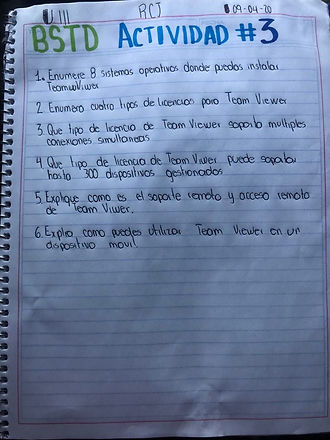 U III RCJ 09-04-20
BSTD ACTIVIDAD #3
1. Enumere 8 sistemas operativos donde puedas instalar
TeamViwer
2. Enumero cuatro tipos de licencias para Team Viewer
3. Que tipo de licencia de Team Viewer soporta multiples
conexiones simultaneas
4. Que tipo de licencia de Team Viwer puede soportar
hasta 300 dispositivos gestionados
5. Explique como es el soporte remoto y acceso remoto
de Team Viwer.
6. Expliq como puedes utilizar Team Viewer en un
dispositivo movil.